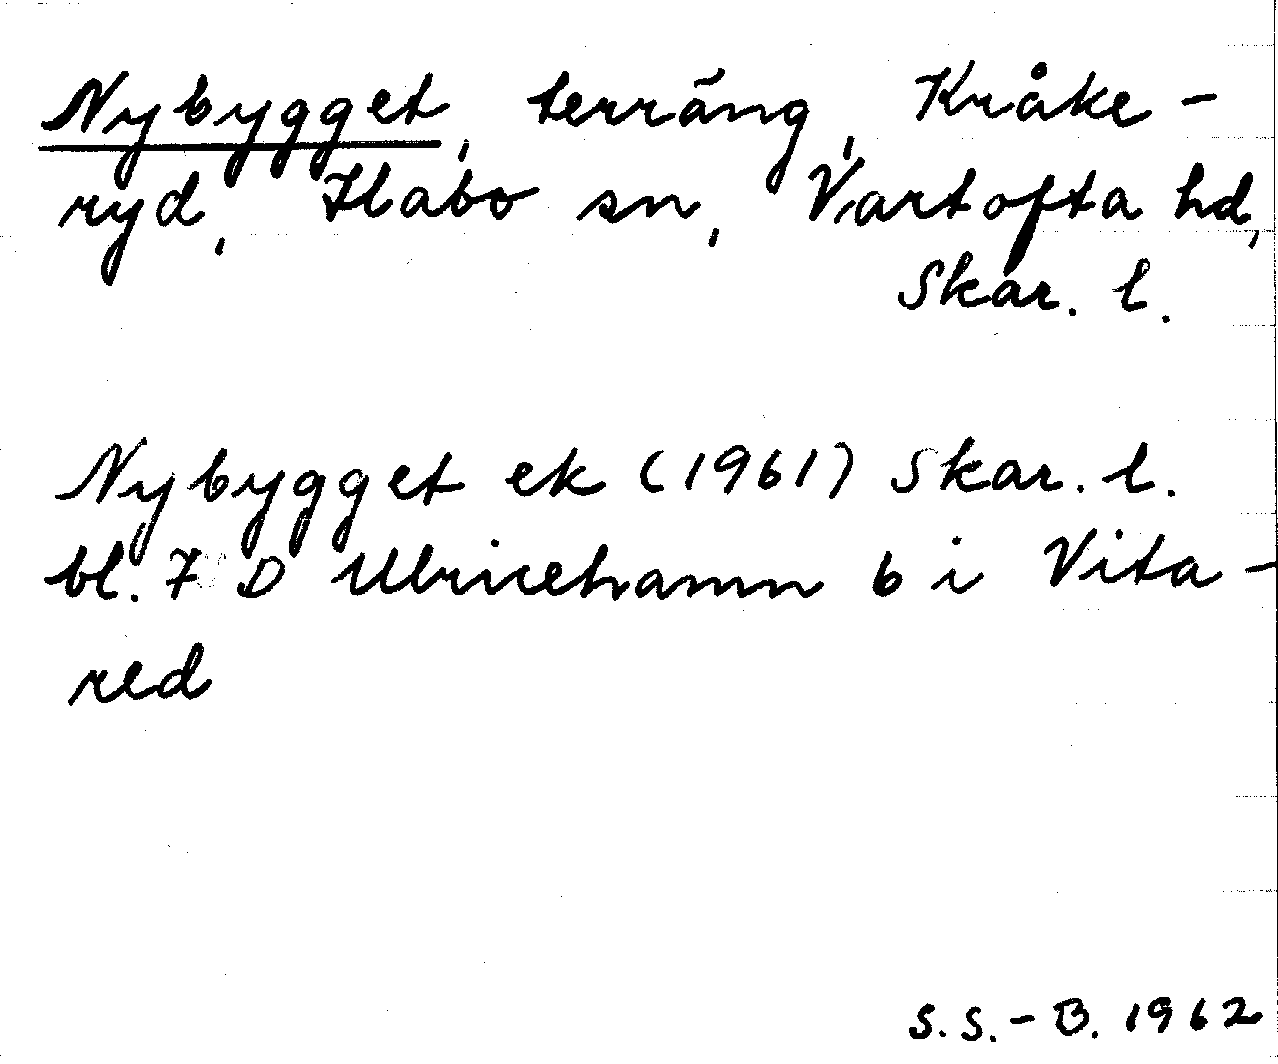 Nybygget, terräng, Kråke-
ryd, Habo sn, Vartofta hd,
Skar. l.
Nybygget ek (1961) Skar. l.
bl. 7 D Ulricehamn 6 i Vita-
red
S.S.-B. 1962